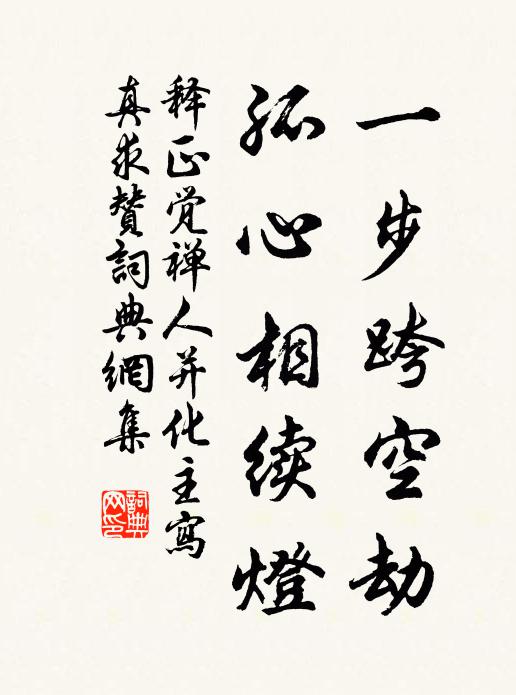 一步跨空劫
孤心相续燈
释正觉禅人并化主寫
真求贊詞典網集
詞典網印